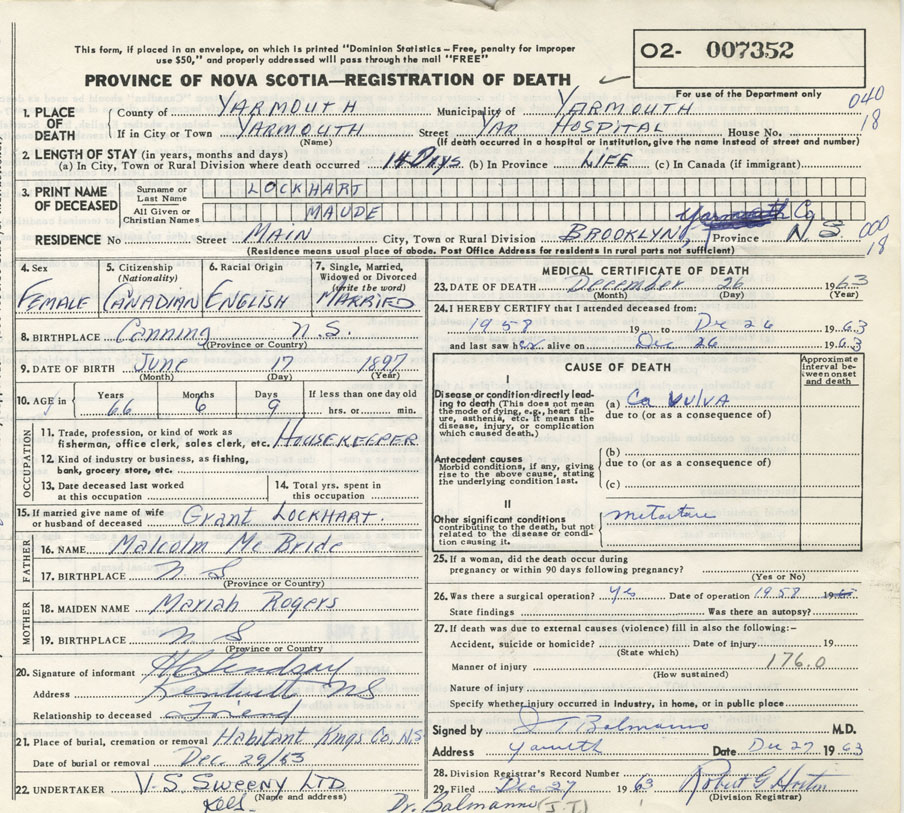 This form, if placed in an envelope, on which is printed "Dominion Statistics – Free, penalty for improper
use $50," and properly addressed will pass through the mail "FREE"
O2- 007352
PROVINCE OF NOVA SCOTIA—REGISTRATION OF DEATH
For use of the Department only
040
18
1. PLACE OF DEATH
County of YARMOUTH Municipality of YARMOUTH
If in City or Town YARMOUTH Street YAR HOSPITAL House No.
(Name) (If death occurred in a hospital or institution, give the name instead of street and number)
2. LENGTH OF STAY (in years, months and days)
(a) In City, Town or Rural Division where death occurred 14 Days (b) In Province LIFE (c) In Canada (if immigrant)
3. PRINT NAME OF DECEASED
Surname or Last Name LOCKHART
All Given or Christian Names MAUDE
RESIDENCE No Street MAIN City, Town or Rural Division BROOKLYN, Yarmouth Co Province N.S
000
18
(Residence means usual place of abode. Post Office Address for residents in rural parts not sufficient)
4. Sex FEMALE
5. Citizenship (Nationality) CANADIAN
6. Racial Origin ENGLISH
7. Single, Married, Widowed or Divorced (write the word) MARRIED
8. BIRTHPLACE Canning N.S.
(Province or Country)
9. DATE OF BIRTH June 17 1897
(Month) (Day) (Year)
10. AGE in Years 66 Months 6 Days 9 If less than one day old hrs. or min.
OCCUPATION
11. Trade, profession, or kind of work as
fisherman, office clerk, sales clerk, etc. HOUSEKEEPER
12. Kind of industry or business, as fishing,
bank, grocery store, etc.
13. Date deceased last worked
at this occupation
14. Total yrs. spent in
this occupation
15. If married give name of wife
or husband of deceased Grant LOCKHART.
FATHER
16. NAME Malcolm McBride
17. BIRTHPLACE N.S
(Province or Country)
MOTHER
18. MAIDEN NAME Mariah Rogers
19. BIRTHPLACE N.S
(Province or Country)
20. Signature of informant Lindsay
Address NS
Relationship to deceased Friend
21. Place of burial, cremation or removal Habitant Kings Co. N.S
Date of burial or removal Dec 29/63
22. UNDERTAKER V.S. SWEENY LTD
(Name and address)
MEDICAL CERTIFICATE OF DEATH
23. DATE OF DEATH December 26 1963
(Month) (Day) (Year)
24. I HEREBY CERTIFY that I attended deceased from:
1958 19 to Dec 26 19 63
and last saw her alive on Dec 26 19 63
CAUSE OF DEATH
Approximate interval between onset and death
I
Disease or condition directly leading to death (This does not mean the mode of dying, e.g., heart failure, asthenia, etc. It means the disease, injury, or complication which caused death.)
(a) Ca VULVA
due to (or as a consequence of)
Antecedent causes
Morbid conditions, if any, giving rise to the above cause, stating the underlying condition last.
(b)
due to (or as a consequence of)
(c)
II
Other significant conditions
contributing to the death, but not related to the disease or condition causing it.
25. If a woman, did the death occur during
pregnancy or within 90 days following pregnancy?
(Yes or No)
26. Was there a surgical operation? Yes Date of operation 1958 19
State findings Was there an autopsy?
27. If death was due to external causes (violence) fill in also the following:–
Accident, suicide or homicide? Date of injury 19
(State which)
Manner of injury 176.0
(How sustained)
Nature of injury
Specify whether injury occurred in industry, in home, or in public place
Signed by J T Balmanno M.D.
Address Yarmouth Date Dec 27 1963
28. Division Registrar's Record Number
29. Filed Dec 27 19 63 Robert G Horton
(Division Registrar)
Dr. Balmanno (J.T.)